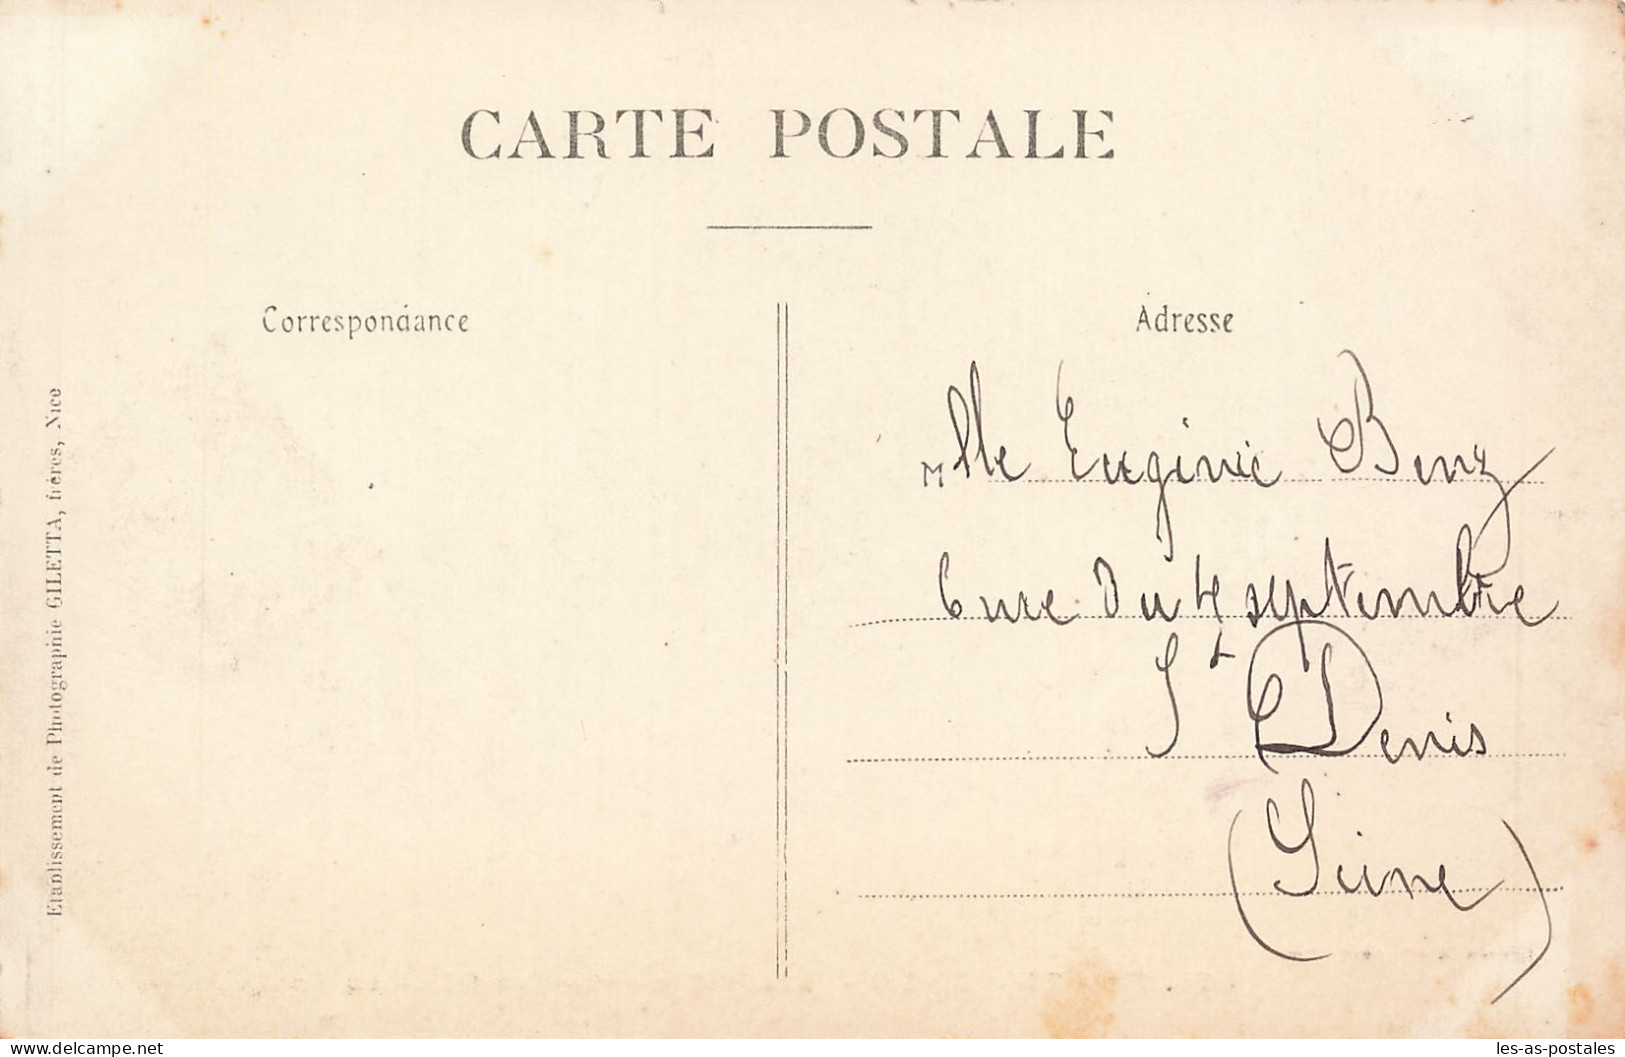 CARTE POSTALE
Correspondance
Adresse
Mlle Eugénie Benz
6 rue Du 4 septembre
St Denis
(Seine)
Etablissement de Photographie GILETTA, frères, Nice
www.delcampe.net
les-as-postales